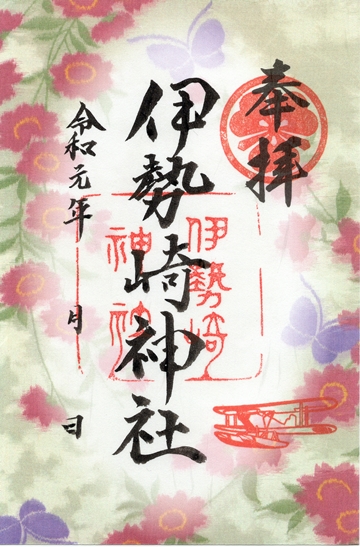 奉拝
伊勢崎神社
伊勢崎
神社
令和元年 月 日